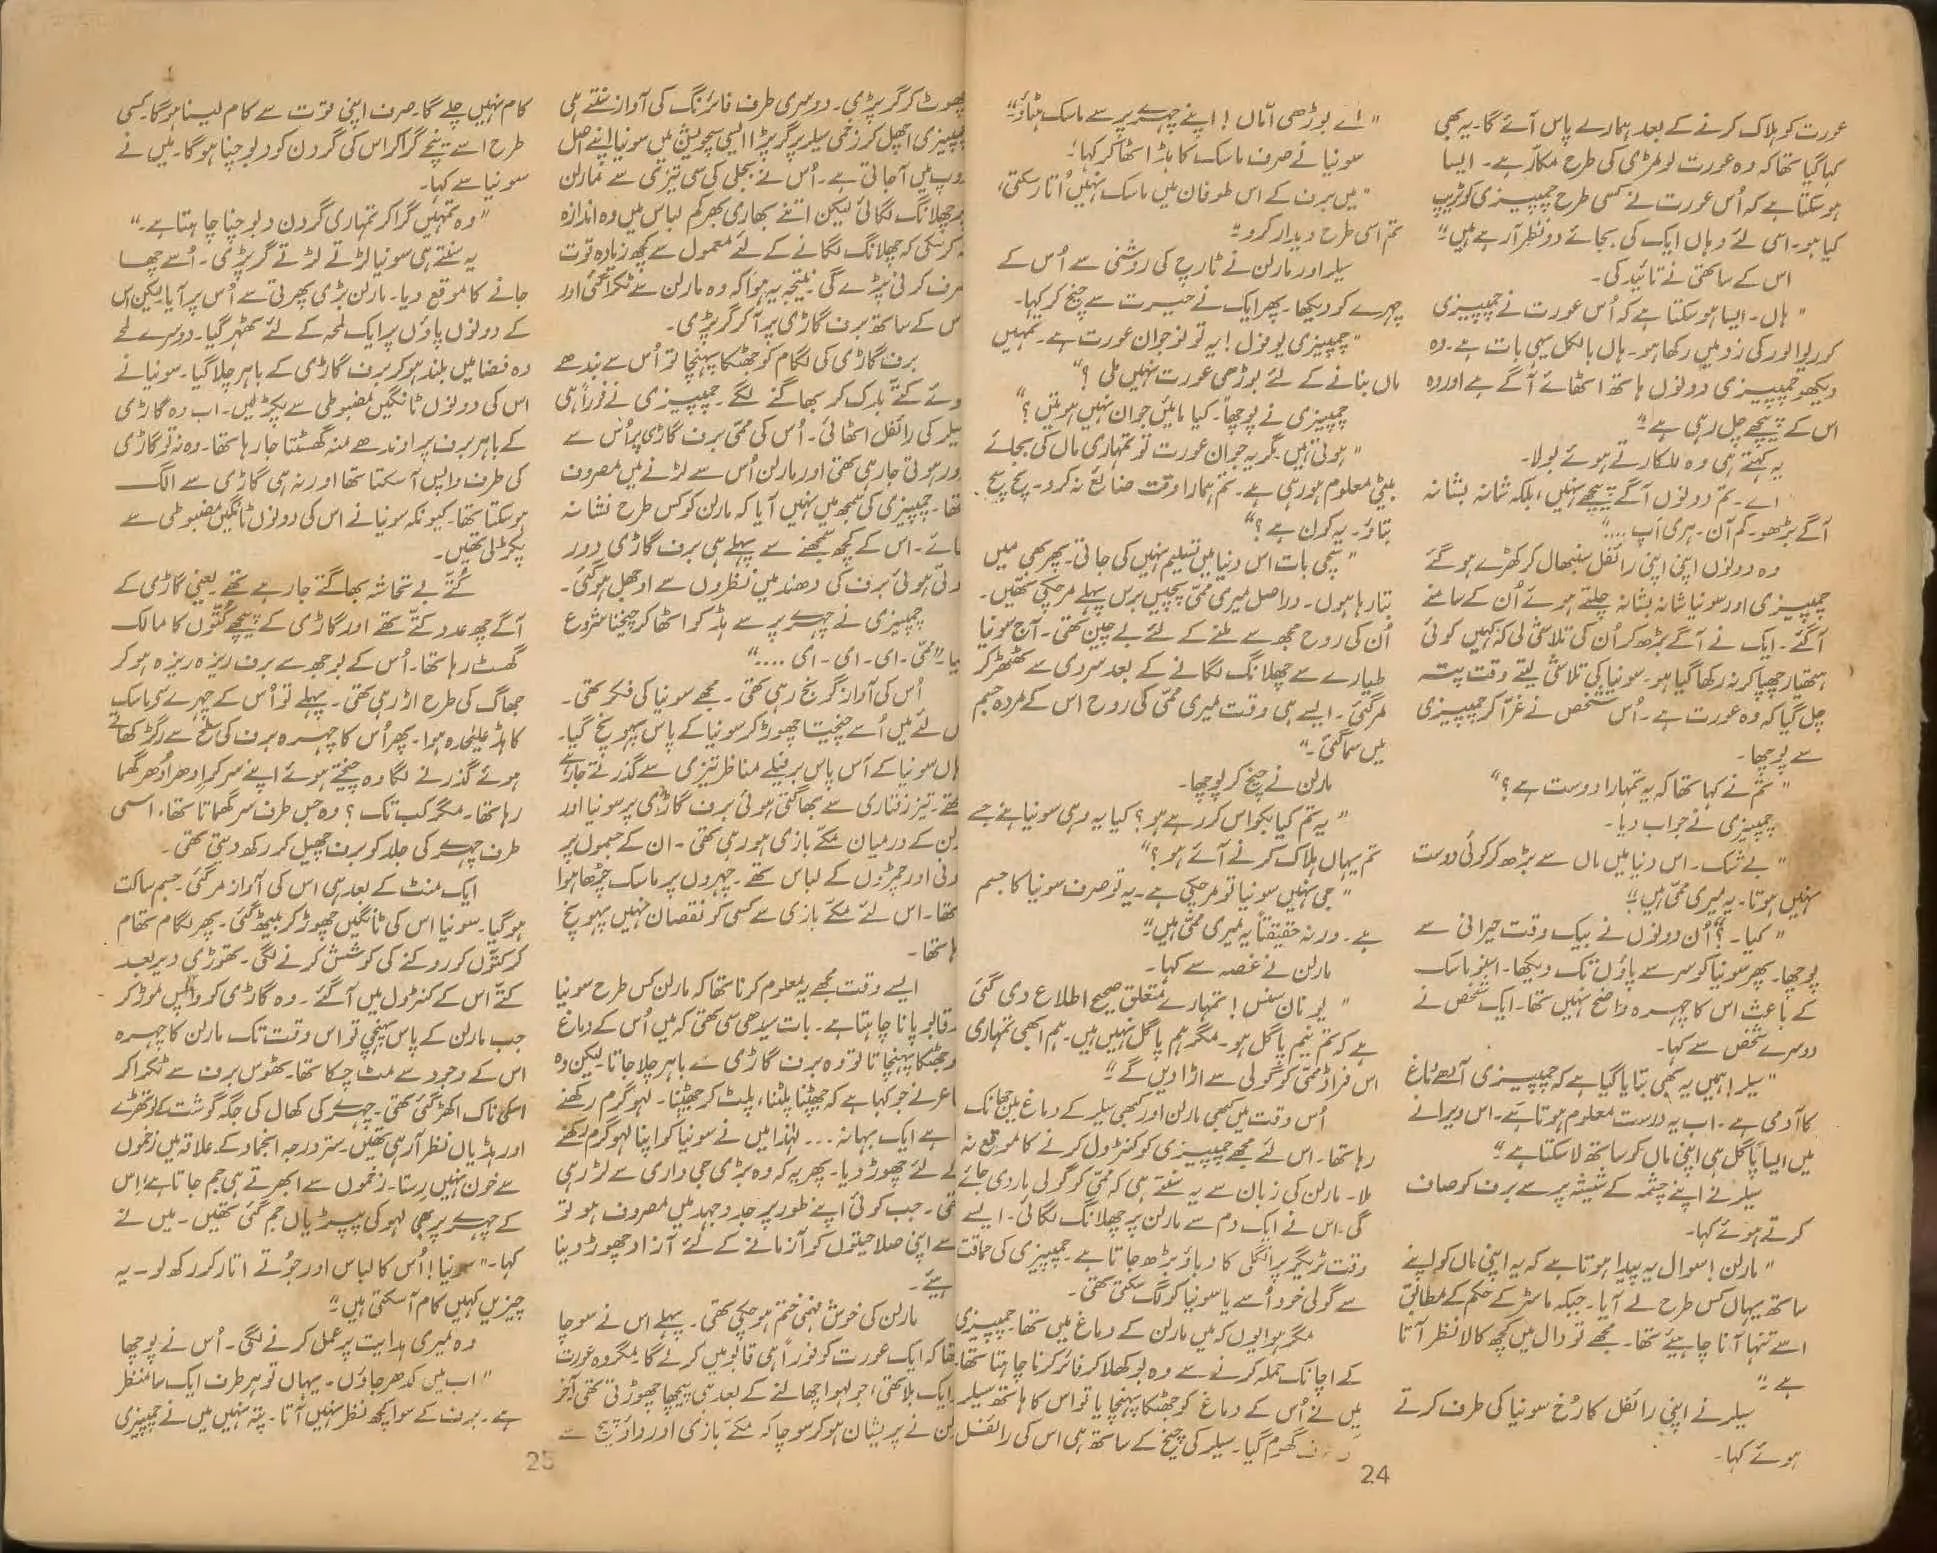 عورت کو ہلاک کرنے کے بعد ہمارے پاس آئے گا۔ یہ بھی
کہا گیا تھا کہ وہ عورت لومڑی کی طرح مکار ہے۔ ایسا
ہو سکتا ہے کہ اُس عورت نے کسی طرح چمپیزی کو ٹریپ
کیا ہو۔ اسی لئے وہاں ایک کی بجائے دو نظر آ رہے ہیں"
اس کے ساتھی نے تائید کی۔
"ہاں۔ ایسا ہو سکتا ہے کہ اُس عورت نے چمپیزی
کو ریوالور کی زد میں رکھا ہو۔ ہاں بالکل یہی بات ہے۔ وہ
دیکھو چمپیزی دونوں ہاتھ اٹھائے آگے ہے اور وہ
اس کے پیچھے چل رہی ہے"
یہ کہتے ہی وہ للکارتے ہوئے بولا۔
اے۔ تم دونوں آگے پیچھے نہیں، بلکہ شانہ بشانہ
آگے بڑھو۔ کم آن۔ ہری اَپ ...."
وہ دونوں اپنی اپنی رائفل سنبھال کر کھڑے ہو گئے
چمپیزی اور سونیا شانہ بشانہ چلتے ہوئے اُن کے سامنے
آ گئے۔ ایک نے آگے بڑھ کر اُن کی تلاشی لی کہ کہیں کوئی
ہتھیار چھپا کر نہ رکھا گیا ہو۔ سونیا کی تلاشی لیتے وقت پتہ
چل گیا کہ وہ عورت ہے۔ اُس شخص نے غرّا کر چمپیزی
سے پوچھا۔
"تم نے کہا تھا کہ یہ تمہارا دوست ہے؟"
چمپیزی نے جواب دیا۔
"بے شک۔ اس دنیا میں ماں سے بڑھ کر کوئی دوست
نہیں ہوتا۔ یہ میری ممّی ہیں"
"کیا۔؟" اُن دونوں نے بیک وقت حیرانی سے
پوچھا۔ پھر سونیا کو سر سے پاؤں تک دیکھا۔ اسنو ماسک
کے باعث اس کا چہرہ واضح نہیں تھا۔ ایک شخص نے
دوسرے شخص سے کہا۔
"سیلر! ہمیں یہ بھی بتایا گیا ہے کہ چمپیزی آدھے دماغ
کا آدمی ہے۔ اب یہ درست معلوم ہوتا ہے۔ اس ویرانے
میں ایسا پاگل ہی اپنی ماں کو ساتھ لا سکتا ہے"
سیلر نے اپنے چشمہ کے شیشہ پر سے برف کو صاف
کرتے ہوئے کہا۔
"مارلن! سوال یہ پیدا ہوتا ہے کہ یہ اپنی ماں کو اپنے
ساتھ یہاں کس طرح لے آیا۔ جبکہ ماسٹر کے حکم کے مطابق
اسے تنہا آنا چاہیئے تھا۔ مجھے تو دال میں کچھ کالا نظر آتا
ہے"
سیلر نے اپنی رائفل کا رُخ سونیا کی طرف کرتے
ہوئے کہا۔
"اے بوڑھی امّاں! اپنے چہرے پر سے ماسک ہٹاؤ"
سونیا نے صرف ماسک کا ہڈ اٹھا کر کہا،
"میں برف کے اس طوفان میں ماسک نہیں اُتار سکتی،
تم اسی طرح دیدار کرو"
سیلر اور مارلن نے ٹارچ کی روشنی سے اُس کے
چہرے کو دیکھا۔ پھر ایک نے حیرت سے چیخ کر کہا۔
"چمپیزی یو فول! یہ تو نوجوان عورت ہے۔ تمہیں
ماں بنانے کے لئے بوڑھی عورت نہیں ملی؟"
چمپیزی نے پوچھا۔ کیا مائیں جوان نہیں ہوتیں؟"
"ہوتی ہیں۔ مگر یہ جوان عورت تو تمہاری ماں کی بجائے
بیٹی معلوم ہو رہی ہے۔ تم ہمارا وقت ضائع نہ کرو۔ سچ سچ
بتاؤ۔ یہ کون ہے؟"
"سچی بات اس دنیا میں تسلیم نہیں کی جاتی۔ پھر بھی میں
بتا رہا ہوں۔ دراصل میری ممّی پچیس برس پہلے مر چکی تھیں۔
اُن کی روح مجھ سے ملنے کے لئے بے چین تھی۔ آج سونیا
طیارے سے چھلانگ لگانے کے بعد سردی سے ٹھٹھر کر
مر گئی۔ ایسے ہی وقت میری ممّی کی روح اس کے مردہ جسم
میں سما گئی۔"
مارلن نے چیخ کر پوچھا۔
"یہ تم کیا بکواس کر رہے ہو؟ کیا یہ وہی سونیا ہے جسے
تم یہاں ہلاک کرنے آئے ہو؟"
"جی نہیں سونیا تو مر چکی ہے۔ یہ تو صرف سونیا کا جسم
ہے۔ ورنہ حقیقتاً یہ میری ممّی ہیں"
مارلن نے غصہ سے کہا۔
"یو نان سنس! تمہارے متعلق صحیح اطلاع دی گئی
ہے کہ تم نیم پاگل ہو۔ مگر ہم پاگل نہیں ہیں۔ ہم ابھی تمہاری
اس فراڈ ممّی کو گولی سے اڑا دیں گے"
اُس وقت میں کبھی مارلن اور کبھی سیلر کے دماغ میں جھانک
رہا تھا۔ اس لئے مجھے چمپیزی کو کنٹرول کرنے کا موقع نہ
ملا۔ مارلن کی زبان سے یہ سنتے ہی کہ ممّی کو گولی مار دی جائے
گی۔ اس نے ایک دم سے مارلن پر چھلانگ لگائی۔ ایسے
وقت ٹریگر پر انگلی کا دباؤ بڑھ جاتا ہے۔ چمپیزی کی حماقت
سے گولی خود اُسے یا سونیا کو لگ سکتی تھی۔
مگر ہوا یوں کہ میں مارلن کے دماغ میں تھا۔ چمپیزی
کے اچانک حملہ کرنے سے وہ بوکھلا کر فائر کرنا چاہتا تھا۔
میں نے اُس کے دماغ کو جھٹکا پہنچایا تو اس کا ہاتھ سیلر
طرف گھوم گیا۔ سیلر کی چیخ کے ساتھ ہی اس کی رائفل
24
چھوٹ کر گر پڑی۔ دوسری طرف فائرنگ کی آواز سنتے ہی
چمپیزی اچھل کر زخمی سیلر پر گر پڑا ایسی سچویشن میں سونیا اپنے اصل
روپ میں آ جاتی ہے۔ اُس نے بجلی کی سی تیزی سے مارلن
پر چھلانگ لگائی لیکن اتنے بھاری بھرکم لباس میں وہ اندازہ
نہ کر سکی کہ چھلانگ لگانے کے لئے معمول سے کچھ زیادہ قوت
صرف کرنی پڑے گی۔ نتیجہ یہ ہوا کہ وہ مارلن سے ٹکرا گئی اور
اس کے ساتھ برف گاڑی پر آ کر گر پڑی۔
برف گاڑی کی لگام کو جھٹکا پہنچا تو اُس سے بندھے
ہوئے کتے بدک کر بھاگنے لگے۔ چمپیزی نے فوراً ہی
سیلر کی رائفل اٹھائی۔ اُس کی ممّی برف گاڑی پر اُس سے
دور ہوتی جا رہی تھی اور مارلن اُس سے لڑنے میں مصروف
تھا۔ چمپیزی کی سمجھ میں نہیں آیا کہ مارلن کو کس طرح نشانہ
بنائے۔ اس کے کچھ سمجھنے سے پہلے ہی برف گاڑی دور
ہوتی ہوئی برف کی دھند میں نظروں سے اوجھل ہو گئی۔
چمپیزی نے چہرے پر سے ہڈ کو اٹھا کر چیخنا شروع
کیا۔ "ممّی۔ ای۔ ای۔ ای ...."
اُس کی آواز گونج رہی تھی۔ مجھے سونیا کی فکر تھی۔
اس لئے میں اُسے چیختا چھوڑ کر سونیا کے پاس پہونچ گیا۔
وہاں سونیا کے آس پاس برفیلے مناظر تیزی سے گذرتے جا رہے
تھے۔ تیز رفتاری سے بھاگتی ہوئی برف گاڑی پر سونیا اور
مارلن کے درمیان مکّے بازی ہو رہی تھی۔ ان کے جسموں پر
اونی اور چمڑوں کے لباس تھے۔ چہروں پر ماسک چڑھا ہوا
تھا۔ اس لئے مکّے بازی سے کسی کو نقصان نہیں پہونچ
رہا تھا۔
ایسے وقت مجھے یہ معلوم کرنا تھا کہ مارلن کس طرح سونیا
پر قابو پانا چاہتا ہے۔ بات سیدھی سی تھی کہ میں اُس کے دماغ
کو جھٹکا پہنچاتا تو وہ برف گاڑی سے باہر چلا جاتا۔ لیکن وہ
شاعر نے جو کہا ہے کہ جھپٹنا پلٹنا، پلٹ کر جھپٹنا۔ لہو گرم رکھنے
کا ہے ایک بہانہ ... لہٰذا میں نے سونیا کو اپنا لہو گرم رکھنے
کے لئے چھوڑ دیا۔ پھر یہ کہ وہ بڑی جی داری سے لڑ رہی
تھی۔ جب کوئی اپنے طور پر جدوجہد میں مصروف ہو تو
اسے اپنی صلاحیتوں کو آزمانے کے لئے آزاد چھوڑ دینا
چاہیے۔
مارلن کی خوش فہمی ختم ہو چکی تھی۔ پہلے اس نے سوچا
تھا کہ ایک عورت کو فوراً ہی قابو میں کر لے گا۔ مگر وہ عورت
ایک بلا تھی، جو لہو اچھالنے کے بعد ہی پیچھا چھوڑتی تھی آخر
مارلن نے پریشان ہو کر سوچا کہ مکّے بازی اور داؤ پیچ سے
کام نہیں چلے گا۔ صرف اپنی قوت سے کام لینا ہو گا۔ کسی
طرح اسے نیچے گرا کر اس کی گردن کو دبوچنا ہو گا۔ میں نے
سونیا سے کہا۔
"وہ تمہیں گرا کر تمہاری گردن دبوچنا چاہتا ہے۔"
یہ سنتے ہی سونیا لڑتے لڑتے گر پڑی۔ اُسے چھا
جانے کا موقع دیا۔ مارلن بڑی پھرتی سے اُس پر آیا لیکن اس
کے دونوں پاؤں پر ایک لمحہ کے لئے ٹھہر گیا۔ دوسرے لمحے
وہ فضا میں بلند ہو کر برف گاڑی کے باہر چلا گیا۔ سونیا نے
اس کی دونوں ٹانگیں مضبوطی سے پکڑ لیں۔ اب وہ گاڑی
کے باہر برف پر اوندھے منہ گھسٹتا جا رہا تھا۔ وہ نہ تو گاڑی
کی طرف واپس آ سکتا تھا اور نہ ہی گاڑی سے الگ
ہو سکتا تھا۔ کیونکہ سونیا نے اس کی دونوں ٹانگیں مضبوطی سے
پکڑ لی تھیں۔
کُتّے بے تحاشہ بھاگتے جا رہے تھے۔ یعنی گاڑی کے
آگے چھ عدد کتّے تھے اور گاڑی کے پیچھے کُتّوں کا مالک
گھسٹ رہا تھا۔ اُس کے بوجھ سے برف ریزہ ریزہ ہو کر
جھاگ کی طرح اڑ رہی تھی۔ پہلے تو اُس کے چہرے سے ماسک
کا ہڈ علیٰحدہ ہوا۔ پھر اُس کا چہرہ برف کی سطح سے رگڑ کھاتے
ہوئے گذرنے لگا وہ چیختے ہوئے اپنے سر کو ادھر اُدھر گھما
رہا تھا۔ مگر کب تک؟ وہ جس طرف سر گھماتا تھا، اسی
طرف چہرے کی جلد کو برف چھیل کر رکھ دیتی تھی۔
ایک منٹ کے بعد ہی اس کی آواز مر گئی۔ جسم ساکت
ہو گیا۔ سونیا اس کی ٹانگیں چھوڑ کر بیٹھ گئی۔ پھر لگام تھام
کر کتّوں کو روکنے کی کوشش کرنے لگی۔ تھوڑی دیر بعد
کتّے اس کے کنٹرول میں آ گئے۔ وہ گاڑی کو واپس موڑ کر
جب مارلن کے پاس پہنچی تو اس وقت تک مارلن کا چہرہ
اس کے وجود سے مٹ چکا تھا۔ ٹھوس برف سے ٹکرا کر
اسکی ناک اکھڑ گئی تھی۔ چہرے کی کھال کی جگہ گوشت کے لوتھڑے
اور ہڈیاں نظر آ رہی تھیں۔ ستر درجہ انجماد کے علاقہ میں زخموں
سے خون نہیں رستا۔ زخموں سے ابھرتے ہی جم جاتا ہے، اس
کے چہرے پر بھی لہو کی پپڑیاں جم گئی تھیں۔ میں نے
کہا۔ "سونیا! اُس کا لباس اور جُوتے اتار کر رکھ لو۔ یہ
چیزیں کہیں کام آ سکتی ہیں"
وہ میری ہدایت پر عمل کرنے لگی۔ اُس نے پوچھا
"اب میں کدھر جاؤں۔ یہاں تو ہر طرف ایک سا منظر
ہے۔ برف کے سوا کچھ نظر نہیں آتا۔ پتہ نہیں میں نے چمپیزی
25